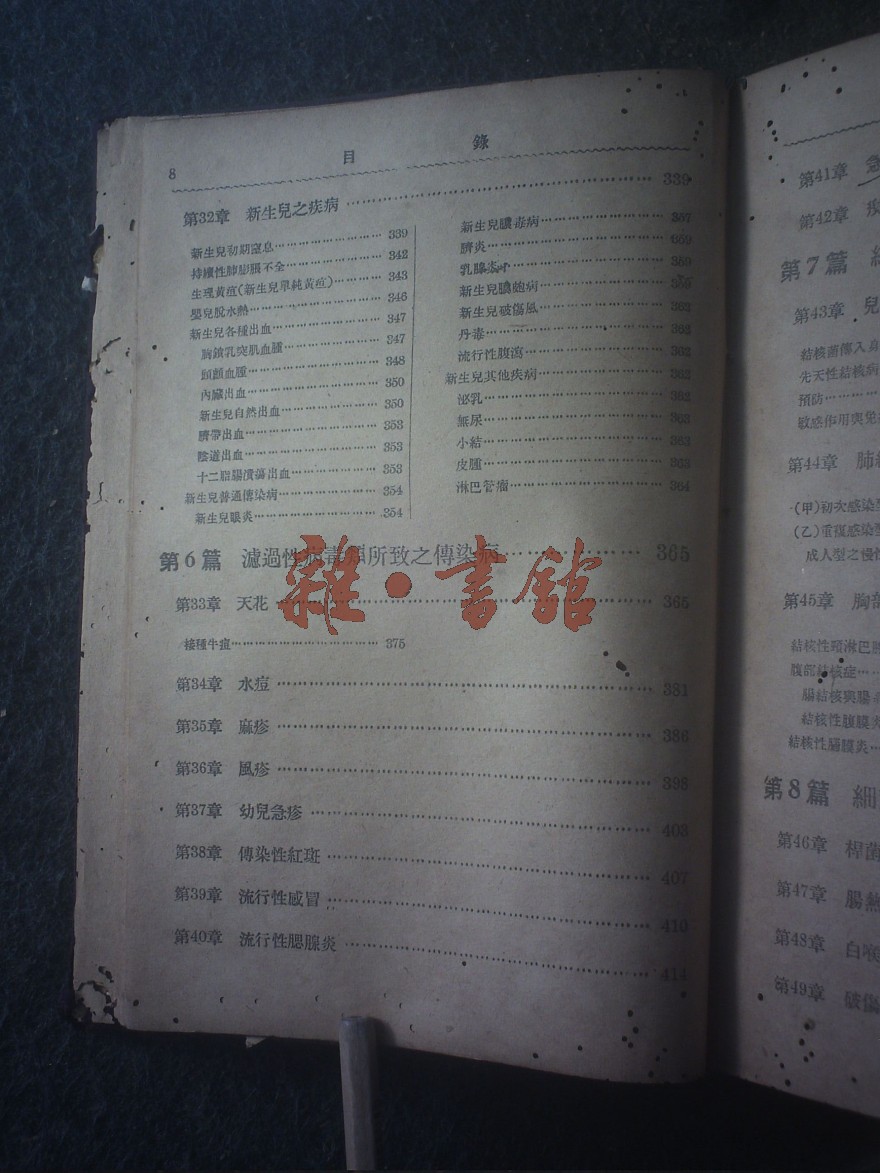 8 目 錄
第32章 新生兒之疾病 339
新生兒初期窒息 339
持續性肺膨脹不全 342
生理黃疸(新生兒單純黃疸) 343
嬰兒脫水熱 346
新生兒各種出血 347
胸鎖乳突肌血腫 347
頭顱血腫 348
內臟出血 350
新生兒自然出血 350
臍帶出血 353
陰道出血 353
十二脂腸潰瘍出血 353
新生兒普通傳染病 354
新生兒眼炎 354
新生兒膿毒病 357
臍炎 359
乳腺炎
新生兒膿皰病
新生兒破傷風 362
丹毒 362
流行性腹瀉 362
新生兒其他疾病 362
泌乳 362
無尿 363
小結 363
皮腫 363
淋巴管瘤 364
第6篇 濾過性病毒類所致之傳染病 365
第33章 天花 365
接種牛痘 375
第34章 水痘 381
第35章 麻疹 386
第36章 風疹 398
第37章 幼兒急疹 403
第38章 傳染性紅斑 407
第39章 流行性感冒 410
第40章 流行性腮腺炎 411
雜·書館
第41章 急
第42章
第7篇
第43章 兒
結核菌傳入
先天性結核病
預防
敏感作用與免
第44章 肺
(甲)初次感染
(乙)重復感染
成人型之慢性
第45章 胸部
結核性頸淋巴
腹部結核症
腸結核與腸
結核性腹膜炎
結核性腦膜炎
第8篇 細
第46章 桿菌
第47章 腸熱
第48章 白喉
第49章 破傷